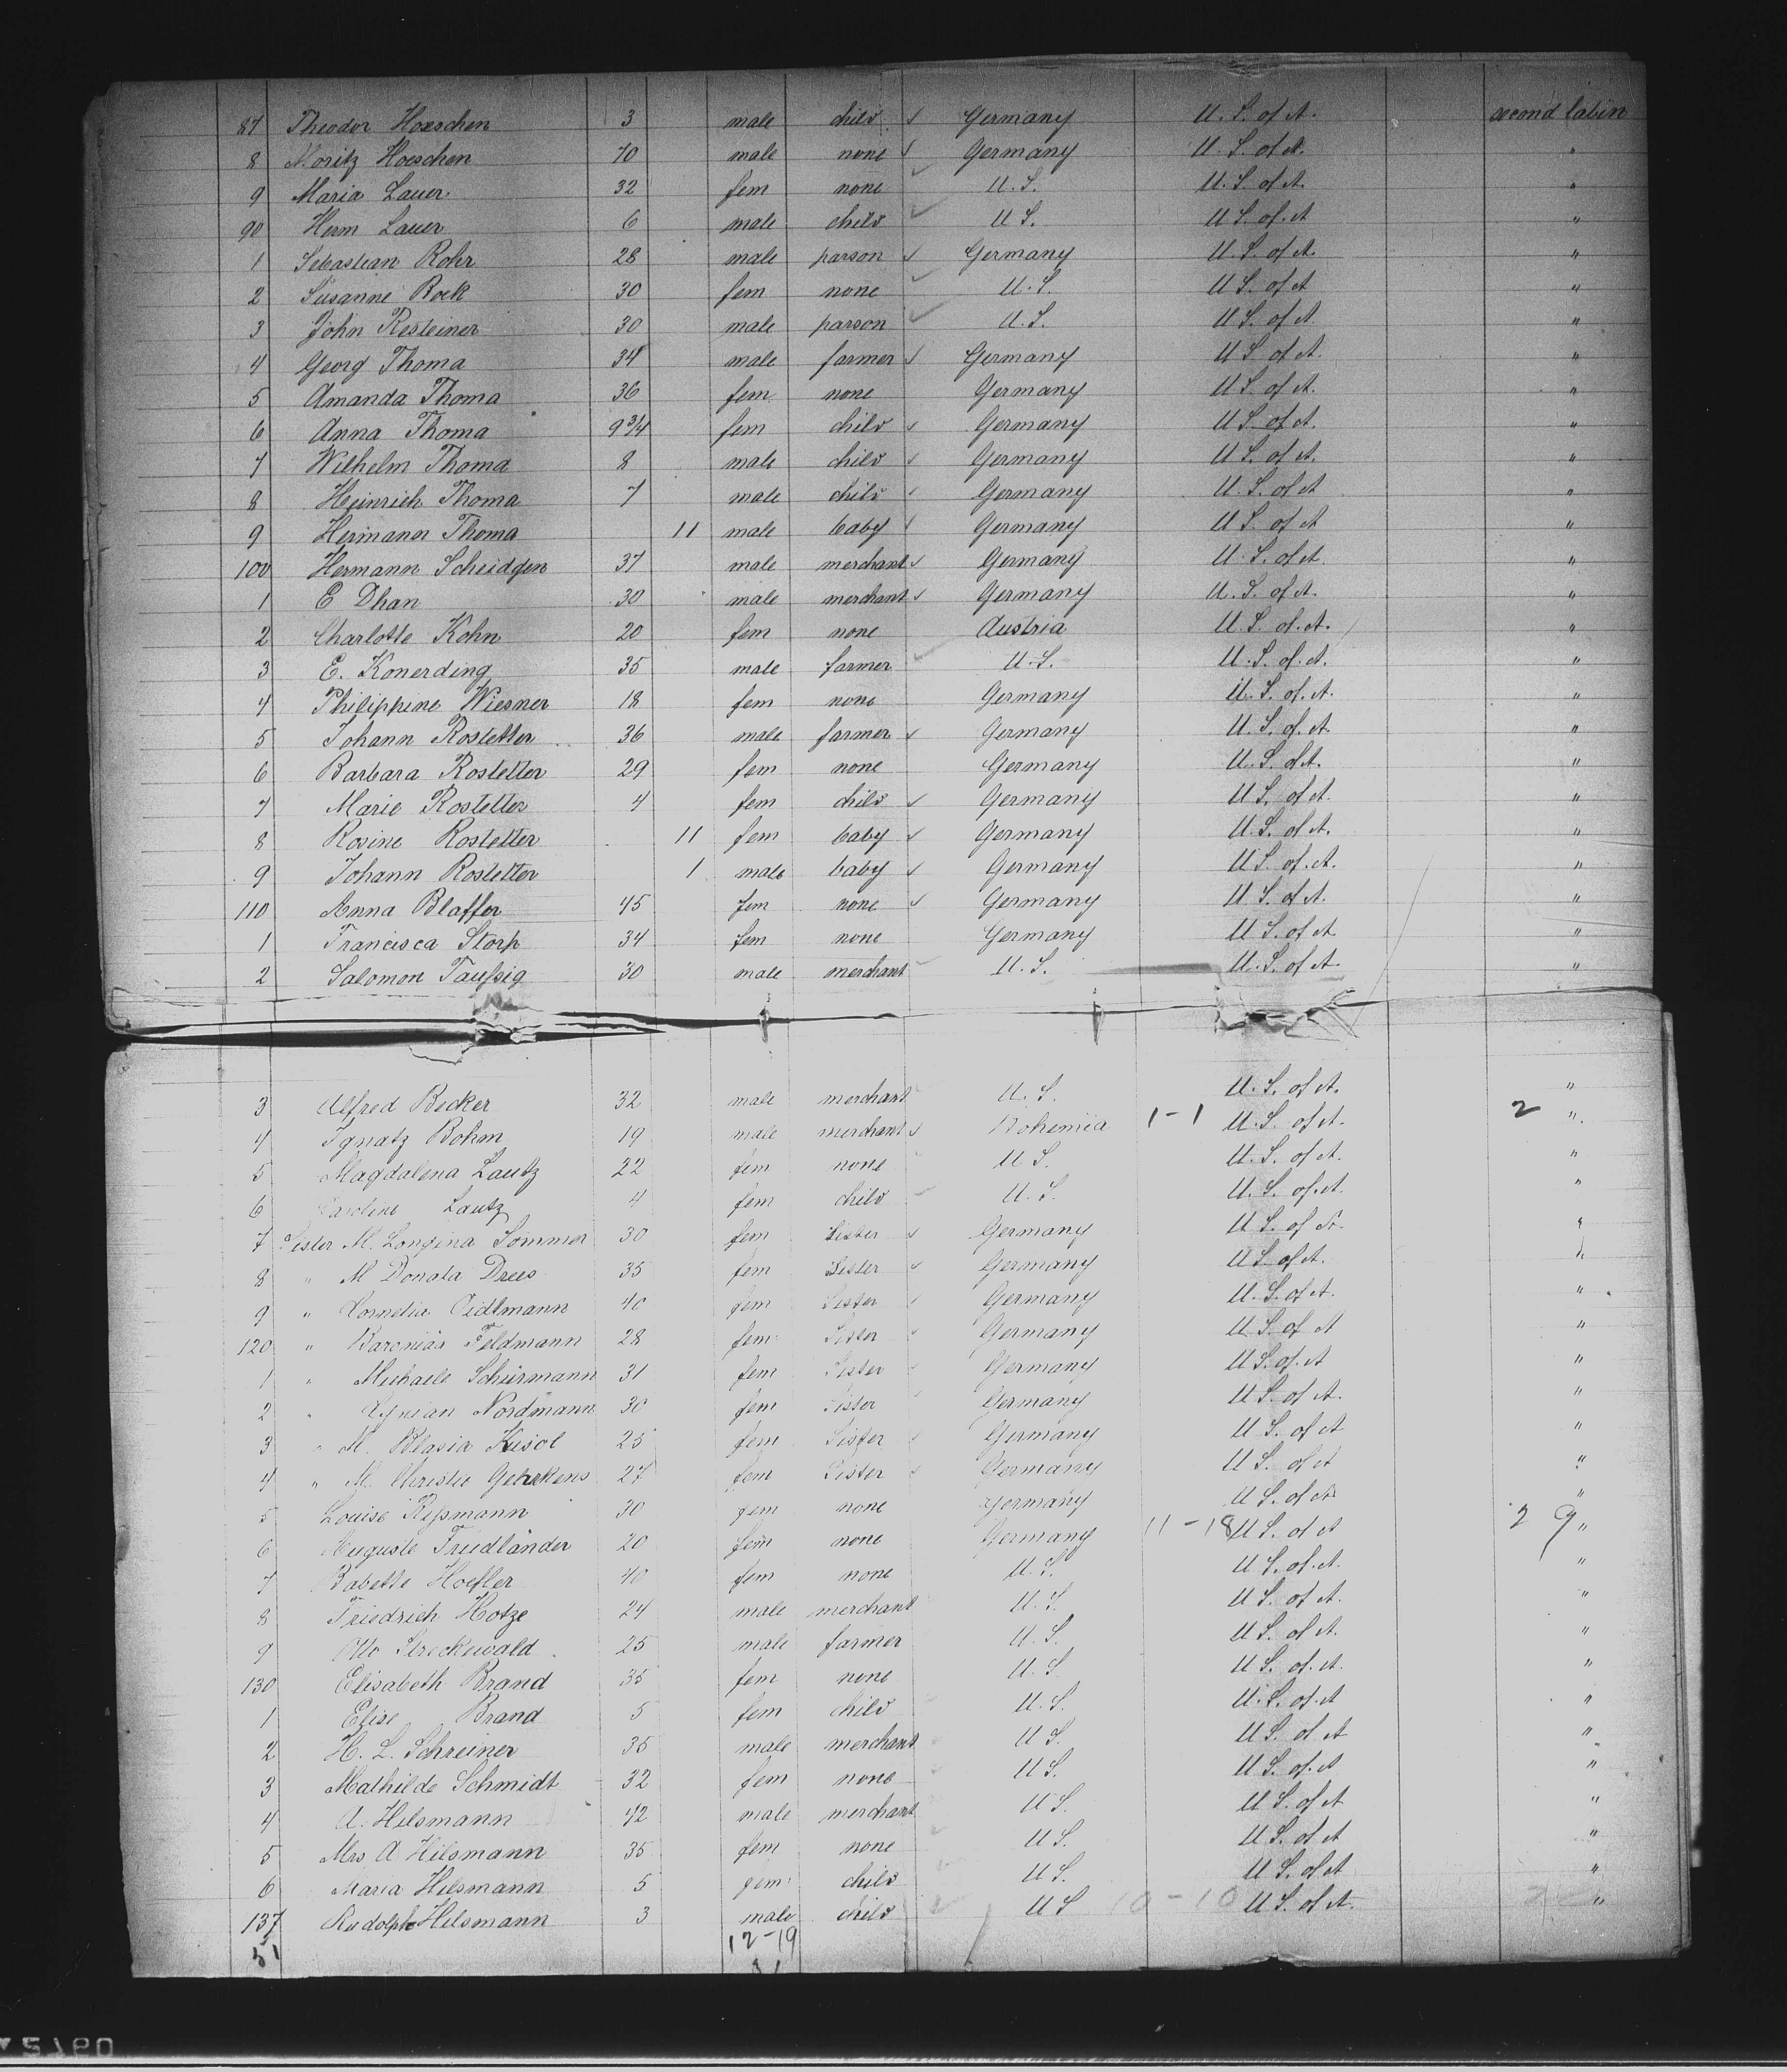 87 Theodor Hoeschen 3 male child ✓ Germany U.S. of A. second Cabin
8 Moritz Hoeschen 70 male none ✓ Germany U.S. of A. "
9 Maria Lauer 32 fem none ✓ U.S. U.S. of A. "
90 Herm Lauer 6 male child ✓ U.S. U.S. of A "
1 Sebastian Rohr 28 male parson ✓ Germany U.S. of A. "
2 Susanne Bock 30 fem none ✓ U.S. U.S. of A "
3 John Resteiner 30 male parson ✓ U.S. U.S. of A. "
4 Georg Thoma 34 male farmer ✓ Germany U.S. of A. "
5 Amanda Thoma 36 fem none Germany U.S. of A. "
6 Anna Thoma 9 3/4 fem child ✓ Germany U.S. of A. "
7 Wilhelm Thoma 8 male child ✓ Germany U.S. of A. "
8 Heinrich Thoma 7 male child ✓ Germany U.S. of A "
9 Hermann Thoma 11 male baby ✓ Germany U.S. of A "
100 Hermann Scheidgen 37 male merchant ✓ Germany U.S. of A. "
1 E Dhan 30 male merchant ✓ Germany U.S. of A. "
2 Charlotte Kohn 20 fem none Austria U.S. of A. "
3 E. Konerding 35 male farmer ✓ U.S. U.S. of A. "
4 Philippine Wiesner 18 fem none Germany U.S. of A. "
5 Johann Rostetter 36 male farmer ✓ Germany U.S. of A. "
6 Barbara Rostetter 29 fem none Germany U.S. of A. "
7 Marie Rostetter 4 fem child ✓ Germany U.S. of A. "
8 Rosine Rostetter 11 fem baby ✓ Germany U.S. of A. "
9 Johann Rostetter 1 male baby ✓ Germany U.S. of A. "
110 Anna Blaffer 45 fem none ✓ Germany U.S. of A. "
1 Francisca Storp 34 fem none Germany U.S. of A "
2 Salomon Taußig 30 male merchant U.S. U.S. of A. "
3 Alfred Becker 32 male merchant U.S. U.S. of A. "
4 Ignatz Bohm 19 male merchant ✓ Bohemia 1-1 U.S. of A. 2 "
5 Magdalena Lautz 22 fem none U.S. U.S. of A. "
6 Caroline Lautz 4 fem child U.S. U.S. of A. "
7 Sister M. Longina Sommer 30 fem Sister ✓ Germany U.S. of A. "
8 " M Donata Drees 35 fem Sister ✓ Germany U.S. of A. "
9 " Cornelia 40 fem Sister Germany U.S. of A. "
120 " Feldmann 28 fem Sister Germany U.S. of A "
1 " Michaele Schürmann 31 fem Sister Germany U.S. of A "
2 " Nordmann 30 fem Sister Germany U.S. of A. "
3 " M. Blasia 25 fem Sister Germany U.S. of A "
4 " M. Christie Gehrkens 27 fem Sister Germany U.S. of A "
5 Louise Rißmann 30 fem none Germany U.S. of A "
6 Auguste Friedländer 20 fem none Germany 11-18 U.S. of A 2 9 "
7 Babette Hoefler 40 fem none U.S. U.S. of A. "
8 Friedrich Kotze 24 male merchant U.S. U.S. of A. "
9 Otto Streckewald 25 male farmer U.S. U.S. of A. "
130 Elisabeth Brand 35 fem none U.S. U.S. of A. "
1 Elise Brand 5 fem child U.S. U.S. of A "
2 H. L. Schreiner 35 male merchant U.S. U.S. of A "
3 Mathilde Schmidt 32 fem none U.S. U.S. of A "
4 A. Hilsmann 42 male merchant U.S. U.S. of A "
5 Mrs A Hilsmann 35 fem none U.S. U.S. of A "
6 Maria Hilsmann 5 fem child U.S. U.S. of A "
137 Rudolph Hilsmann 3 male child U.S 10-10 U.S. of A. "
51 12-19